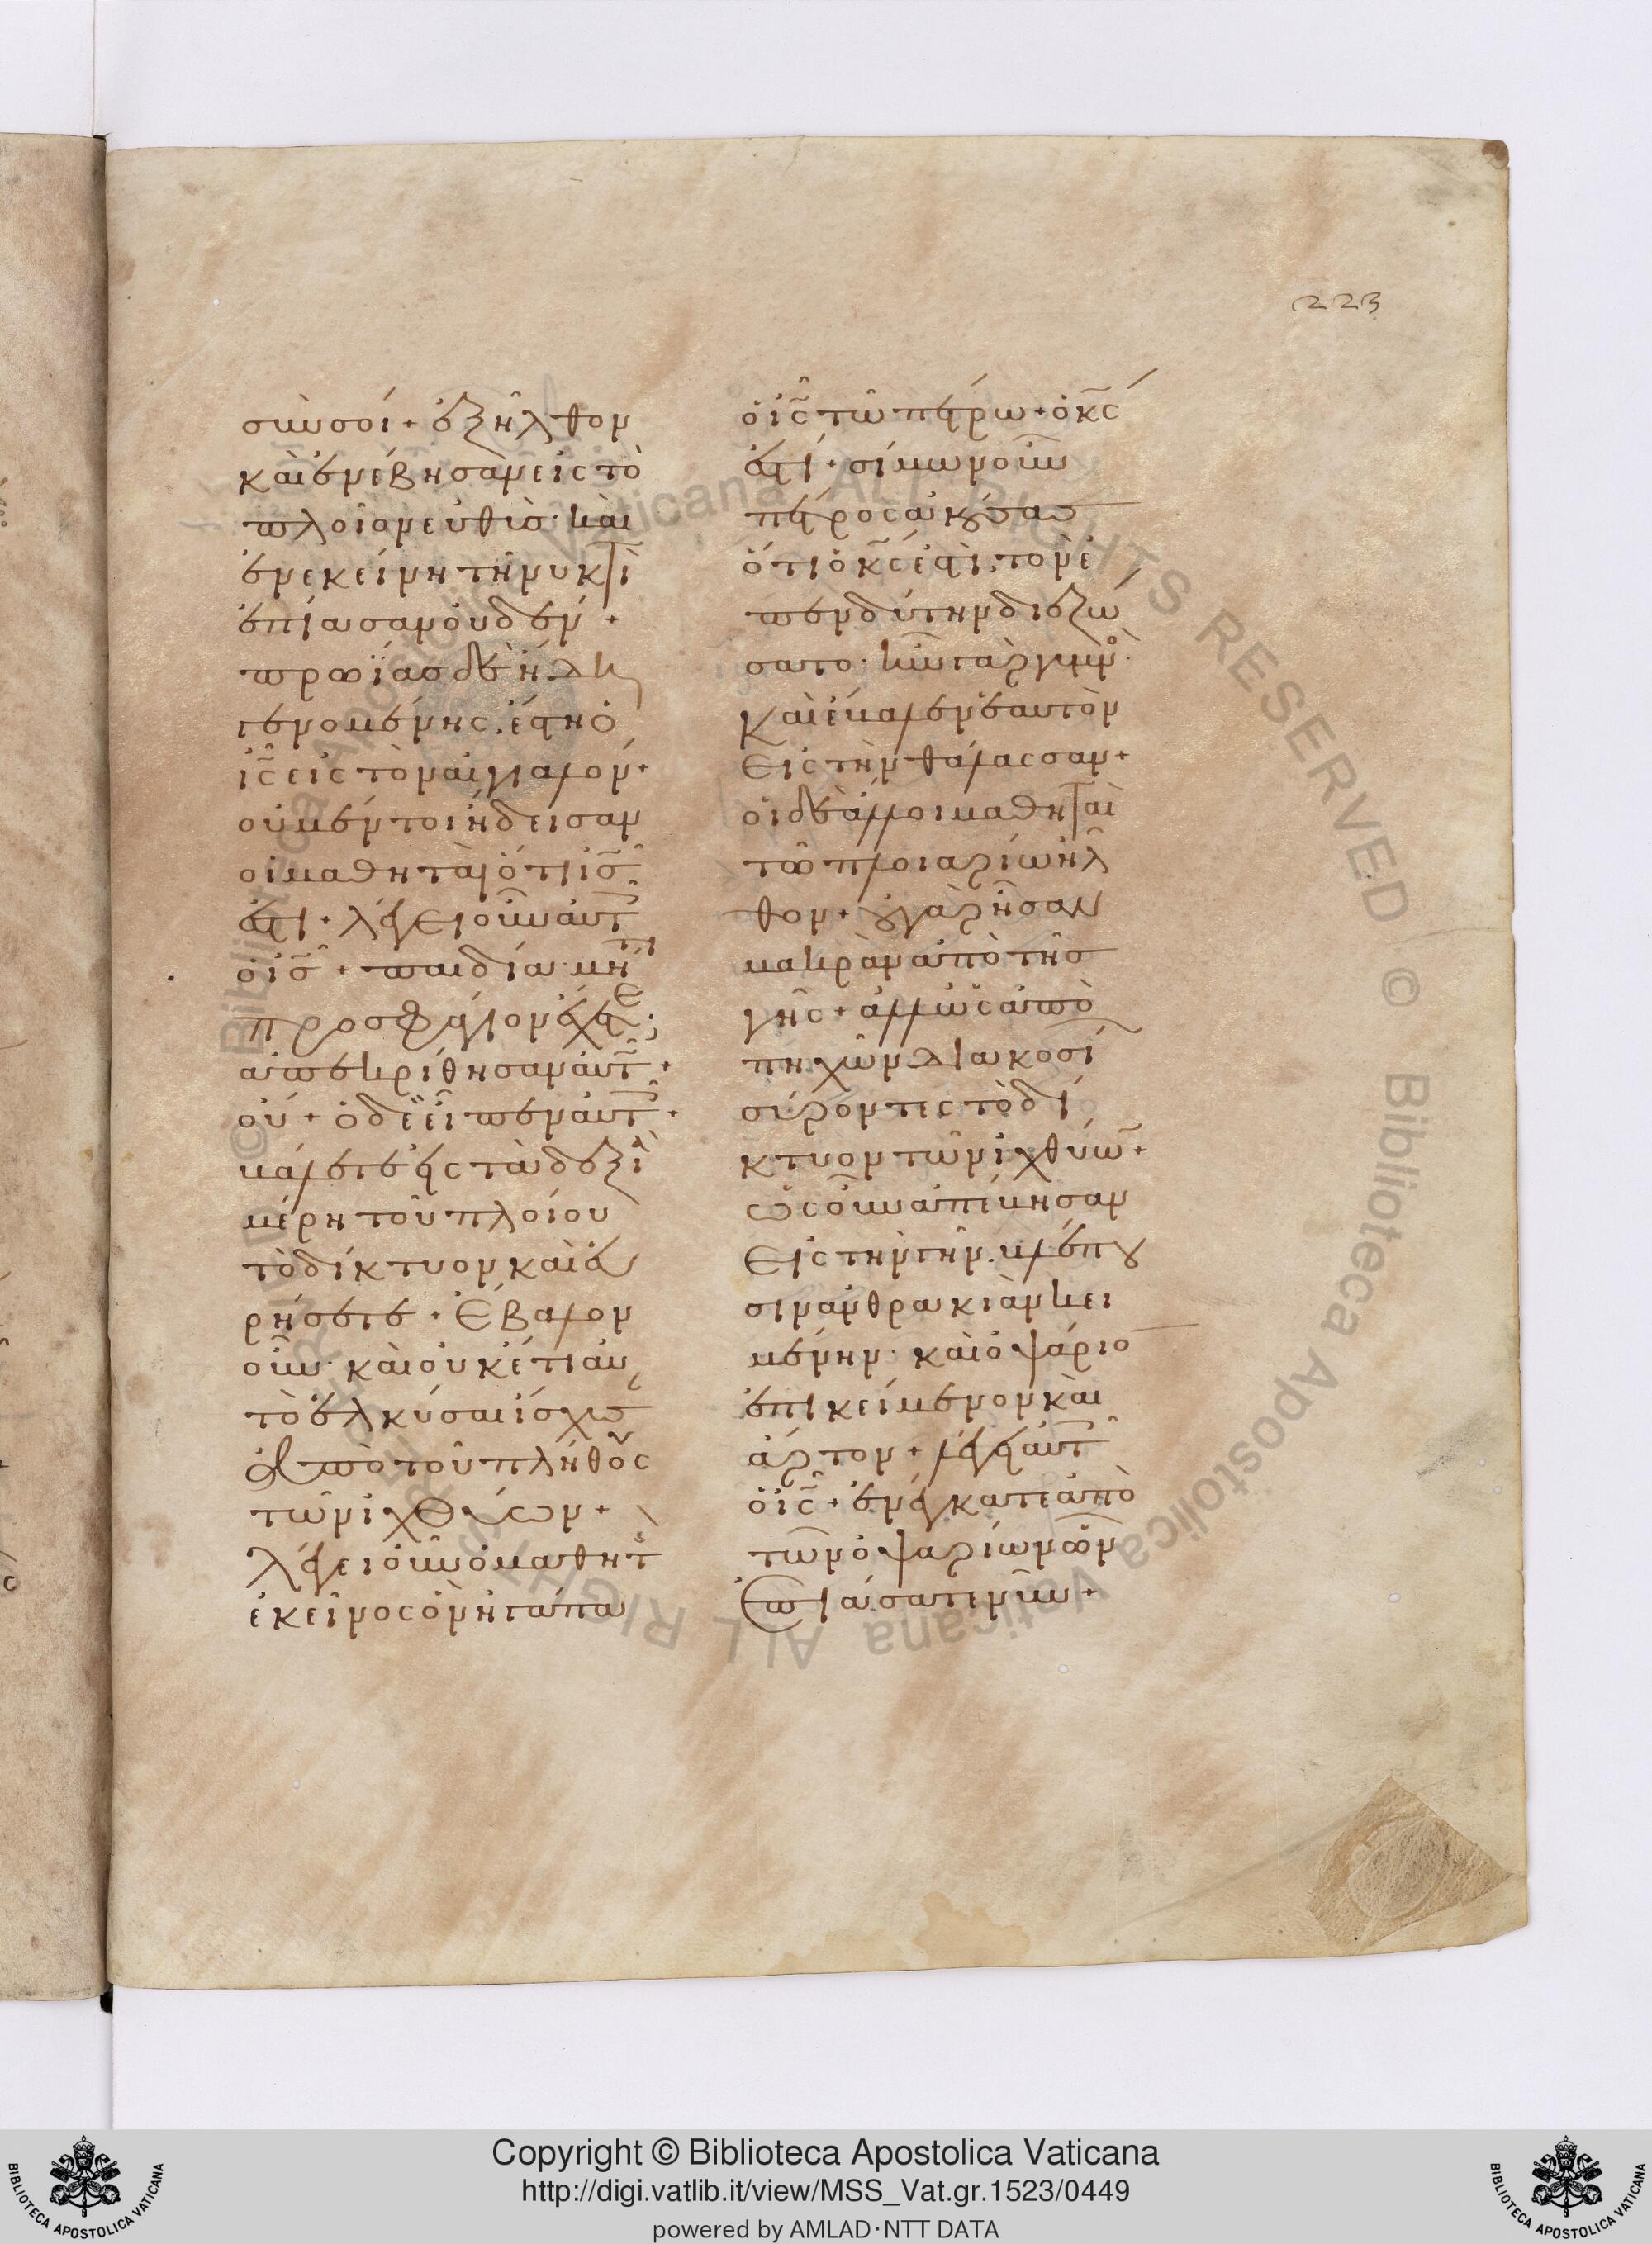 223
σὺν σοί + ἐξῆλθον
καὶ ἐνέβησαν εἰς τὸ
πλοῖον εὐθὺσ · καὶ
ἐν ἐκείνη τῆ νυκτὶ
ἐπίασαν οὐδέν +
πρωΐασ δὲ ἤδη
γενομένης . ἔστη ὁ
ἰ̅ς̅ εἰς τὸν αἰγιαλόν +
οὐ μέντοι ἤδεισαν
οἱ μαθηταὶ ὅτι ἰ̅σ̅
ἐστι + λέγει οὖν αὐτ
ὁ ἰ̅σ̅ + παιδία μή τι
προσφάγιον ἔχετε ;
ἀπεκρίθησαν αὐτ +
οὐ + ὁ δὲ εἶπεν αὐτ +
βάλετε εἰς τὰ δεξιὰ
μέρη τοῦ πλοίου
τὸ δίκτυον καὶ εὑ
ρήσετε + Ἔβαλον
οὖν · καὶ οὐκέτι αὐ
τὸ ἑλκύσαι ἴσχυσ
ἀπὸ τοῦ πλήθους
τῶν ἰχθύων +
λέγει οὖν ὁ μαθητ
ἐκεῖνος ὃν ἠγάπα
ὁ ἰ̅ς̅ τῶ πέτρω + ὁ κ̅ς̅
ἐστι · σίμων οὖν
πέτρος ἀκούσασ
ὅτι ὁ κ̅ς̅ ἐστι , τὸν ἐ
πενδύτην διεζώ
σατο · ἦν γὰρ γυμν ·
καὶ ἔβαλεν ἑαυτὸν
Εἰς τὴν θάλασσαν +
οἱ δὲ ἄλλοι μαθηταὶ
τῶ πλοιαρίω ἦλ
θον + οὐ γὰρ ἦσαν
μακρὰν ἀπὸ τῆσ
γῆς + ἀλλ ὡς ἀπὸ
πηχῶν διακοσί
σύροντες τὸ δί
κτυον τῶν ἰχθύω +
ὡς οὖν ἀπέβησαν
Εἰς τὴν γῆν . βλέπου
σιν ἀνθρακιὰν κει
μένην · καὶ ὀψάριο
ἐπικείμενον καὶ
ἄρτον + λέγει αὐτ
ὁ ἰ̅ς̅ + ἐνέγκατε ἀπὸ
τῶν ὀψαρίων ὧν
ἐπιάσατε νῦν +
Copyright © Biblioteca Apostolica Vaticana
http://digi.vatlib.it/view/MSS_Vat.gr.1523/0449
powered by AMLAD·NTT DATA